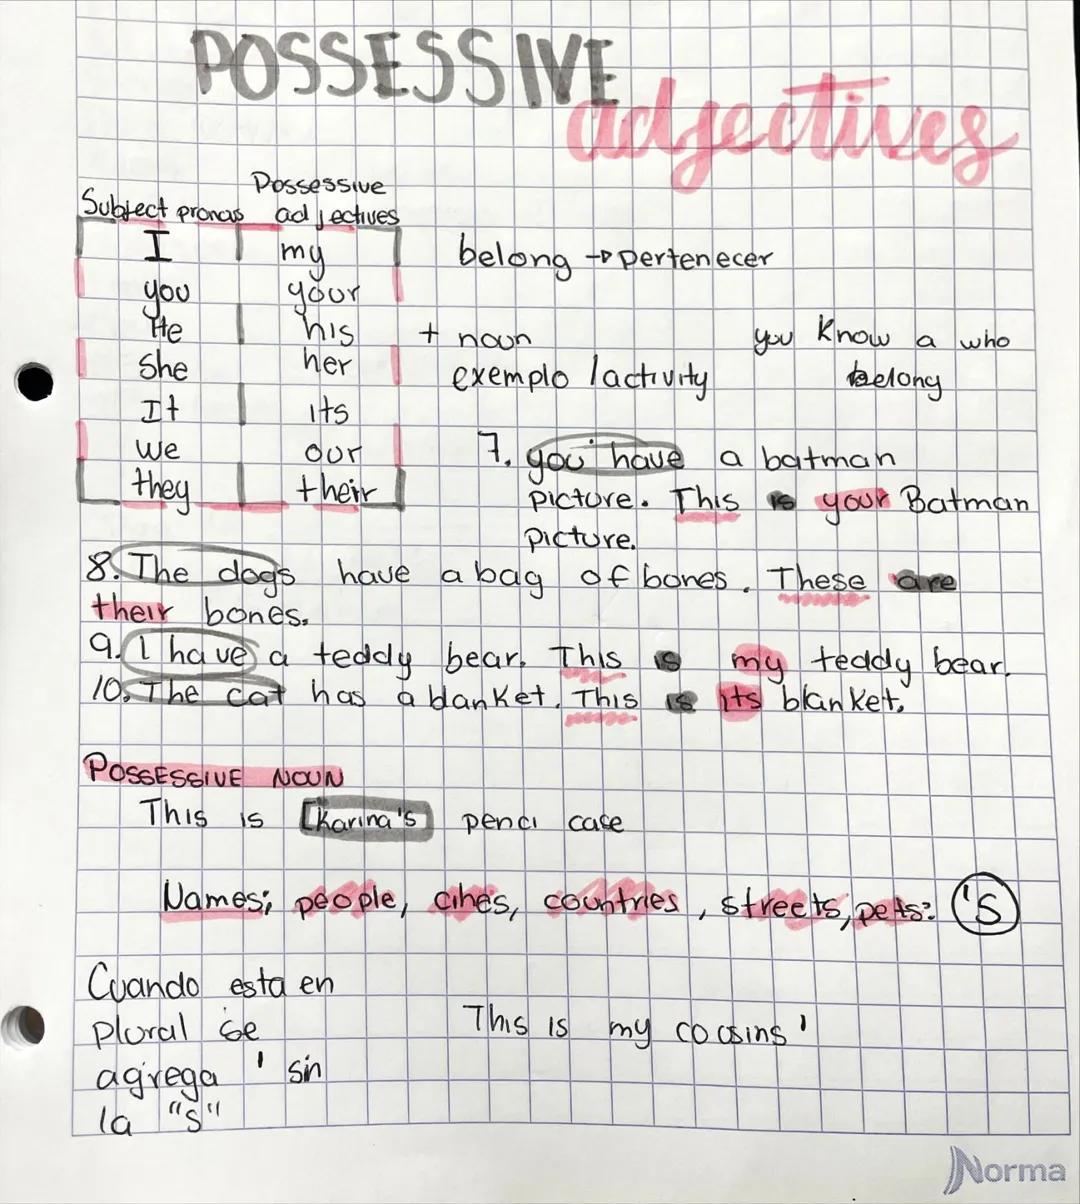 POSSESSIVE
adjectives
Subject pronas Possessive adjectives
I my
you your
He his
she her
It its
we our
they their
belong → pertenecer
+ noun
exemplo / activity
you know a who
belong
7. you have a batman
picture. This is your Batman
picture.
8. The dogs have a bag of bones. These are
their bones.
9. I have a teddy bear. This is my teddy bear.
10. The cat has a blanket. This is its blanket.
POSSESSIVE NOUN
This is [Karina's] penci case
Names; people, cities, countries, streets, pets: 's
Cuando esta en
plural se
agrega ' sin
la "s"
This is my cousins'
Norma